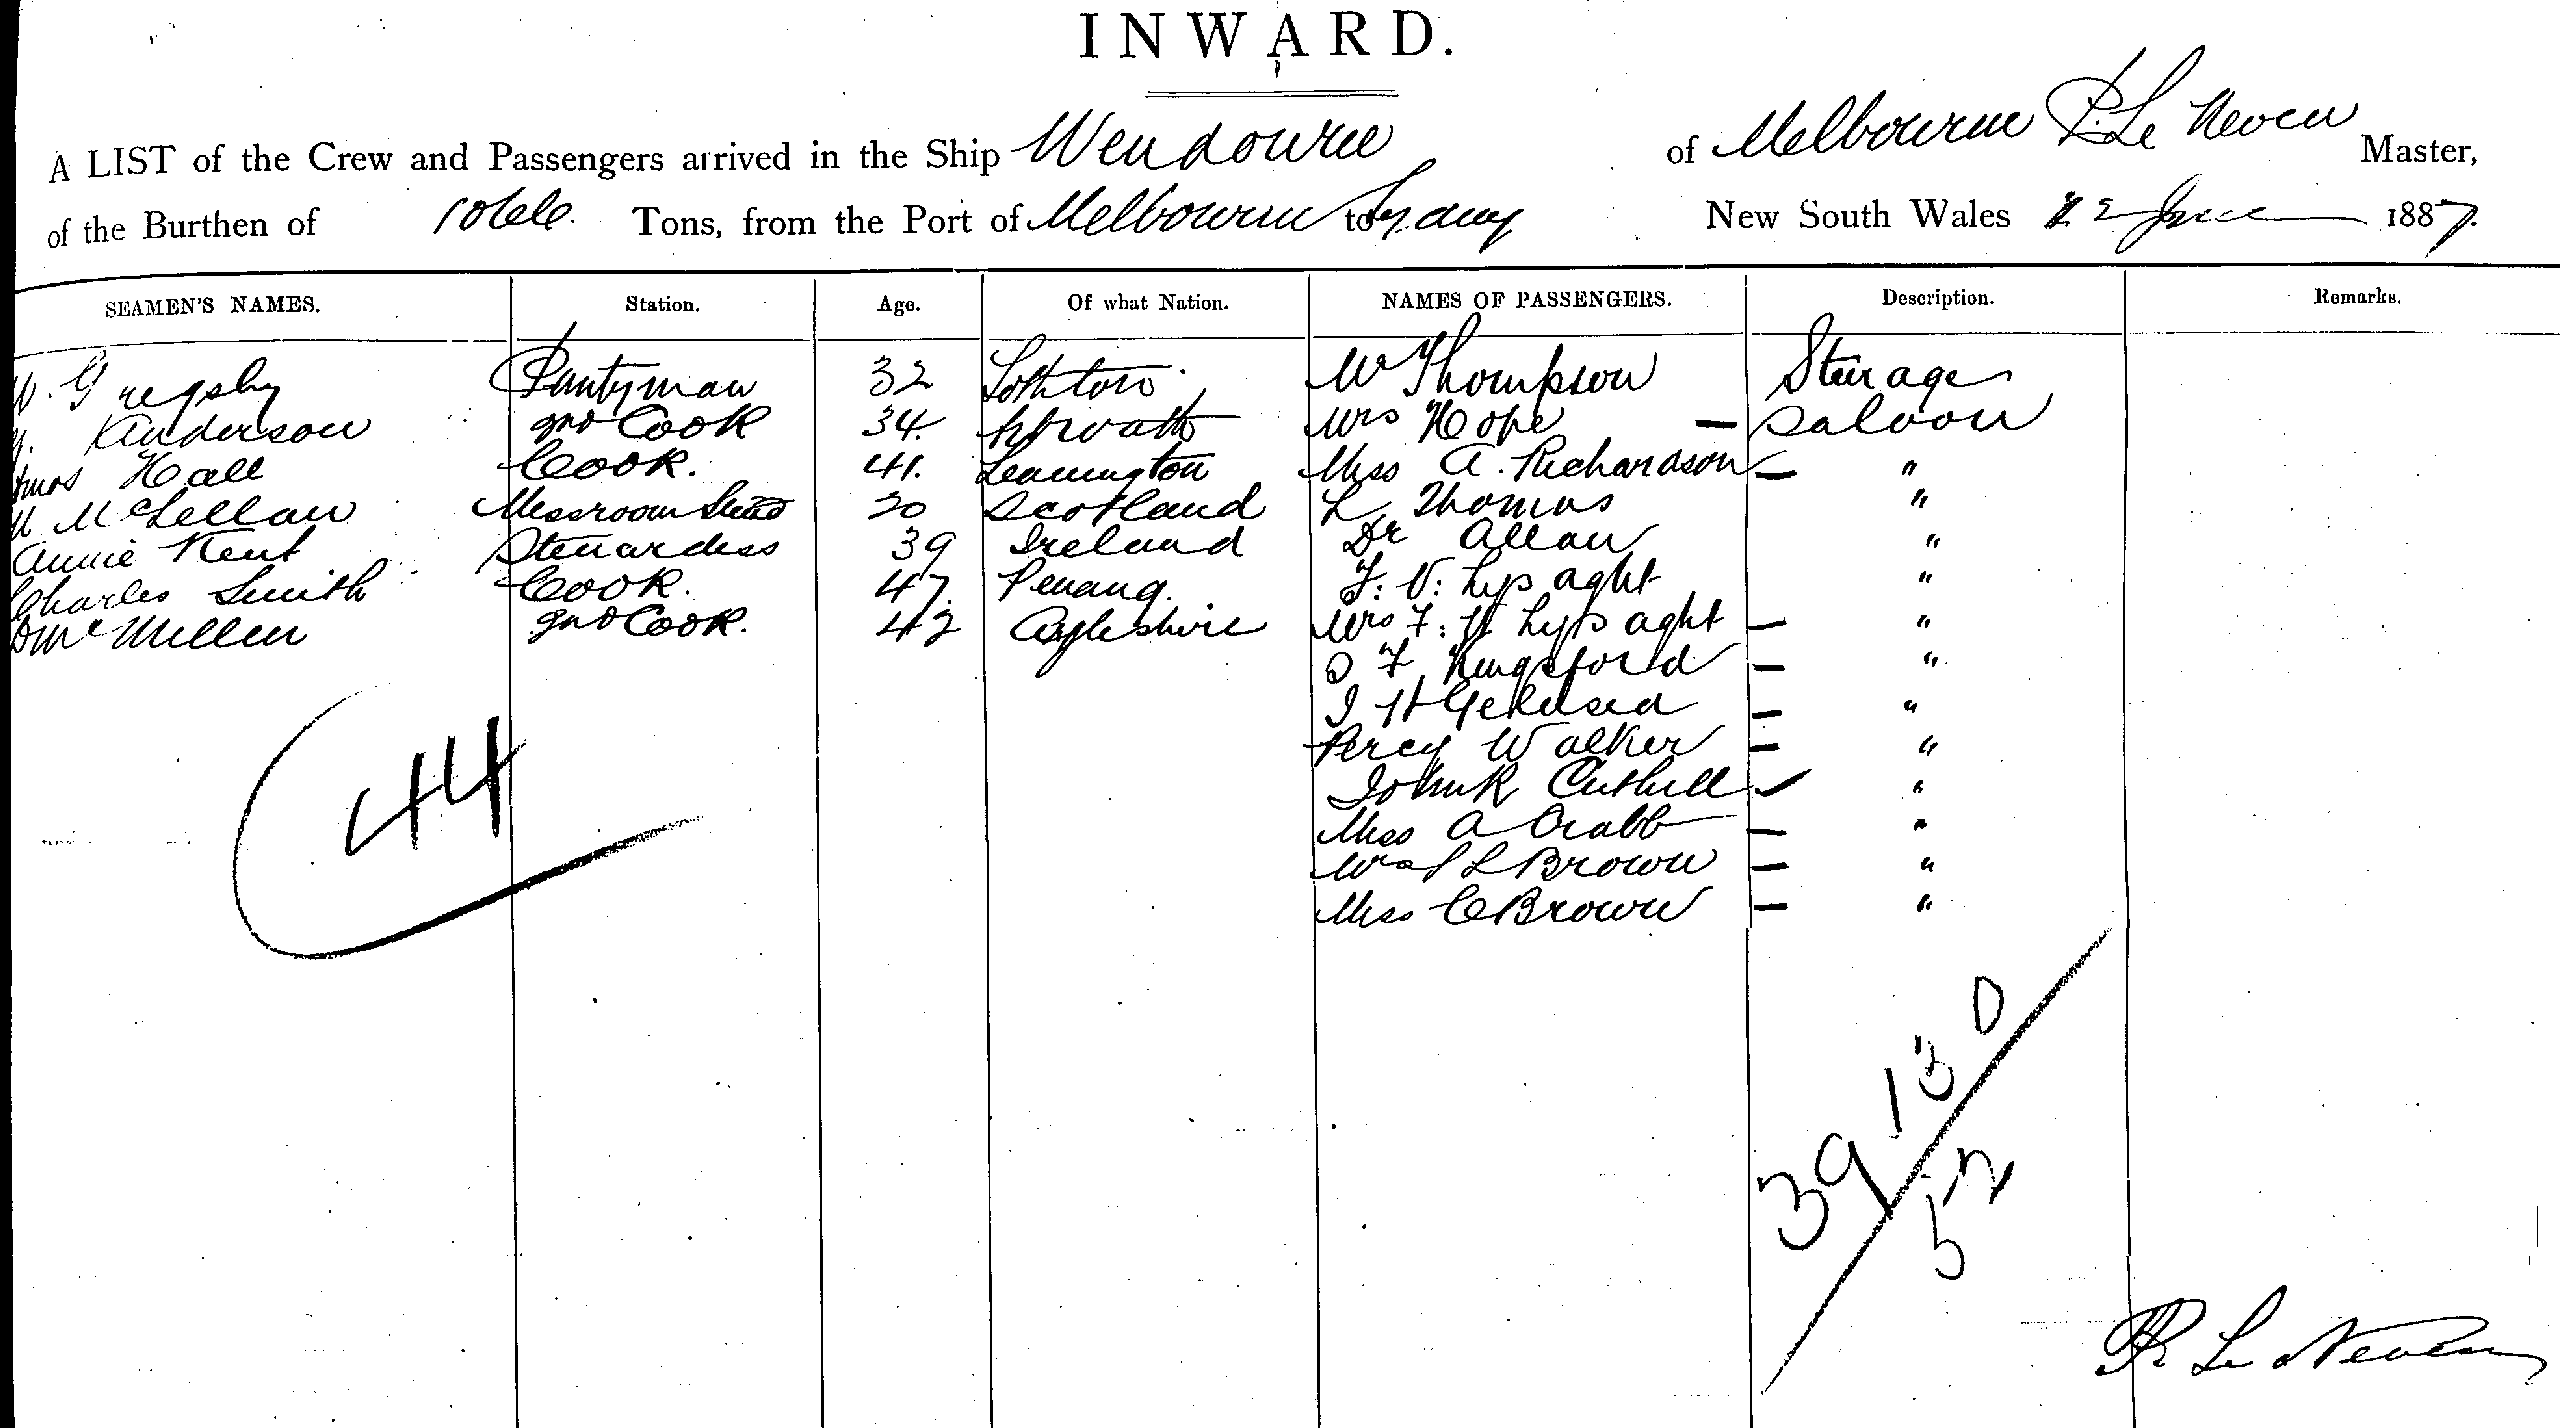 INWARD.
A LIST of the Crew and Passengers arrived in the Ship Wendouree of Melbourne P. Le Neven Master,
of the Burthen of 1066 Tons, from the Port of Melbourne to Sydney New South Wales 22 June 1887.
SEAMEN'S NAMES. Station. Age. Of what Nation. NAMES OF PASSENGERS. Description. Remarks.
W. Gregsby Pantyman 32 Mr Thompson Steerage
Anderson 2nd Cook 34. Mrs Hope — Saloon
Amos Hall Cook. 41. Leamington Miss A. Richardson — "
McLellan Messroom Stwd 20 Scotland L Thomas "
Annie Kent Stewardess 39 Ireland Dr Allan "
Charles Smith Cook. 47. Penang. F: V: Lysaght "
McMillen 2nd Cook. 42 Mrs F: H Lysaght — "
F Kingsford — "
J H — "
Percy Walker — "
John R Cuthill "
Miss A Crabb — "
L Brown — "
Miss C Brown — "
44
39 13 0
52
P. Le Neven